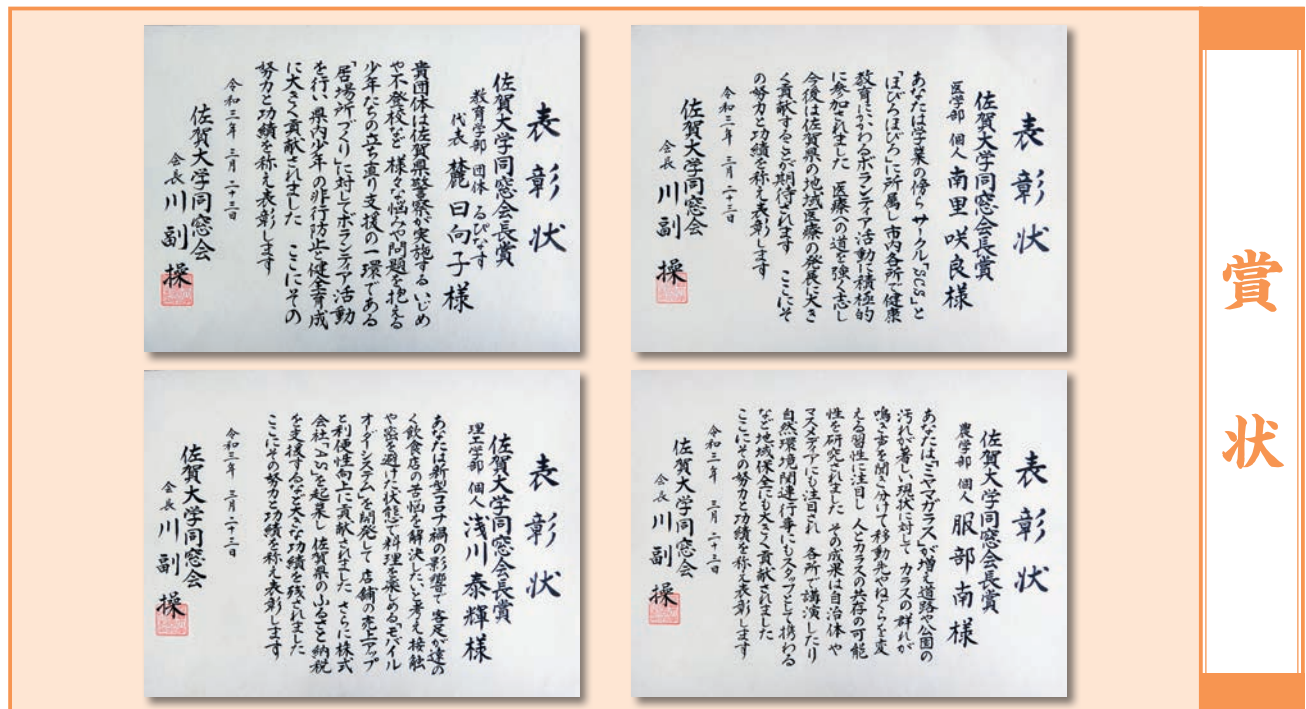 賞状
表彰状
佐賀大学同窓会長賞
医学部 個人 南里咲良様
あなたは学業の傍ら サークル「SCS」と
「ほぴろほぴろ」に所属し市内各所で健康
教育にかかわるボランティア活動に積極的
に参加されました 医療への道を強く志し
今後は佐賀県の地域医療の発展に大き
く貢献することが期待されます ここにそ
の努力と功績を称え表彰します
令和三年 三月 二十三日
佐賀大学同窓会
会長 川副 操
表彰状
佐賀大学同窓会長賞
教育学部 団体 るぴなす
代表 麓日向子様
貴団体は佐賀県警察が実施する いじめ
や不登校など 様々な悩みや問題を抱える
少年たちの立ち直り支援の一環である
「居場所づくり」に対してボランティア活動
を行い 県内少年の非行防止と健全育成
に大きく貢献されました ここにその
努力と功績を称え表彰します
令和三年 三月 二十三日
佐賀大学同窓会
会長 川副 操
表彰状
佐賀大学同窓会長賞
農学部 個人 服部南様
あなたは「ミヤマガラス」が増え道路や公園の
汚れが著しい現状に対して カラスの群れが
鳴き声を聞き分けて移動先やねぐらを変
える習性に注目し 人とカラスの共存の可能
性を研究されました その成果は自治体や
マスメディアにも注目され 各所で講演したり
自然環境関連行事にもスタッフとして携わる
など地域保全にも大きく貢献されました
ここにその努力と功績を称え表彰します
令和三年 三月 二十三日
佐賀大学同窓会
会長 川副 操
表彰状
佐賀大学同窓会長賞
理工学部 個人 浅川泰輝様
あなたは新型コロナ禍の影響で 客足が遠の
く飲食店の苦悩を解決したいと考え 接触
や密を避けた状態で料理を楽める「モバイル
オーダーシステム」を開発して 店舗の売上アップ
と利便性向上に貢献されました さらに株式
会社「AS」を起業し 佐賀県のふるさと納税
を支援するなど大きな功績を残されました
ここにその努力と功績を称え表彰します
令和三年 三月 二十三日
佐賀大学同窓会
会長 川副 操